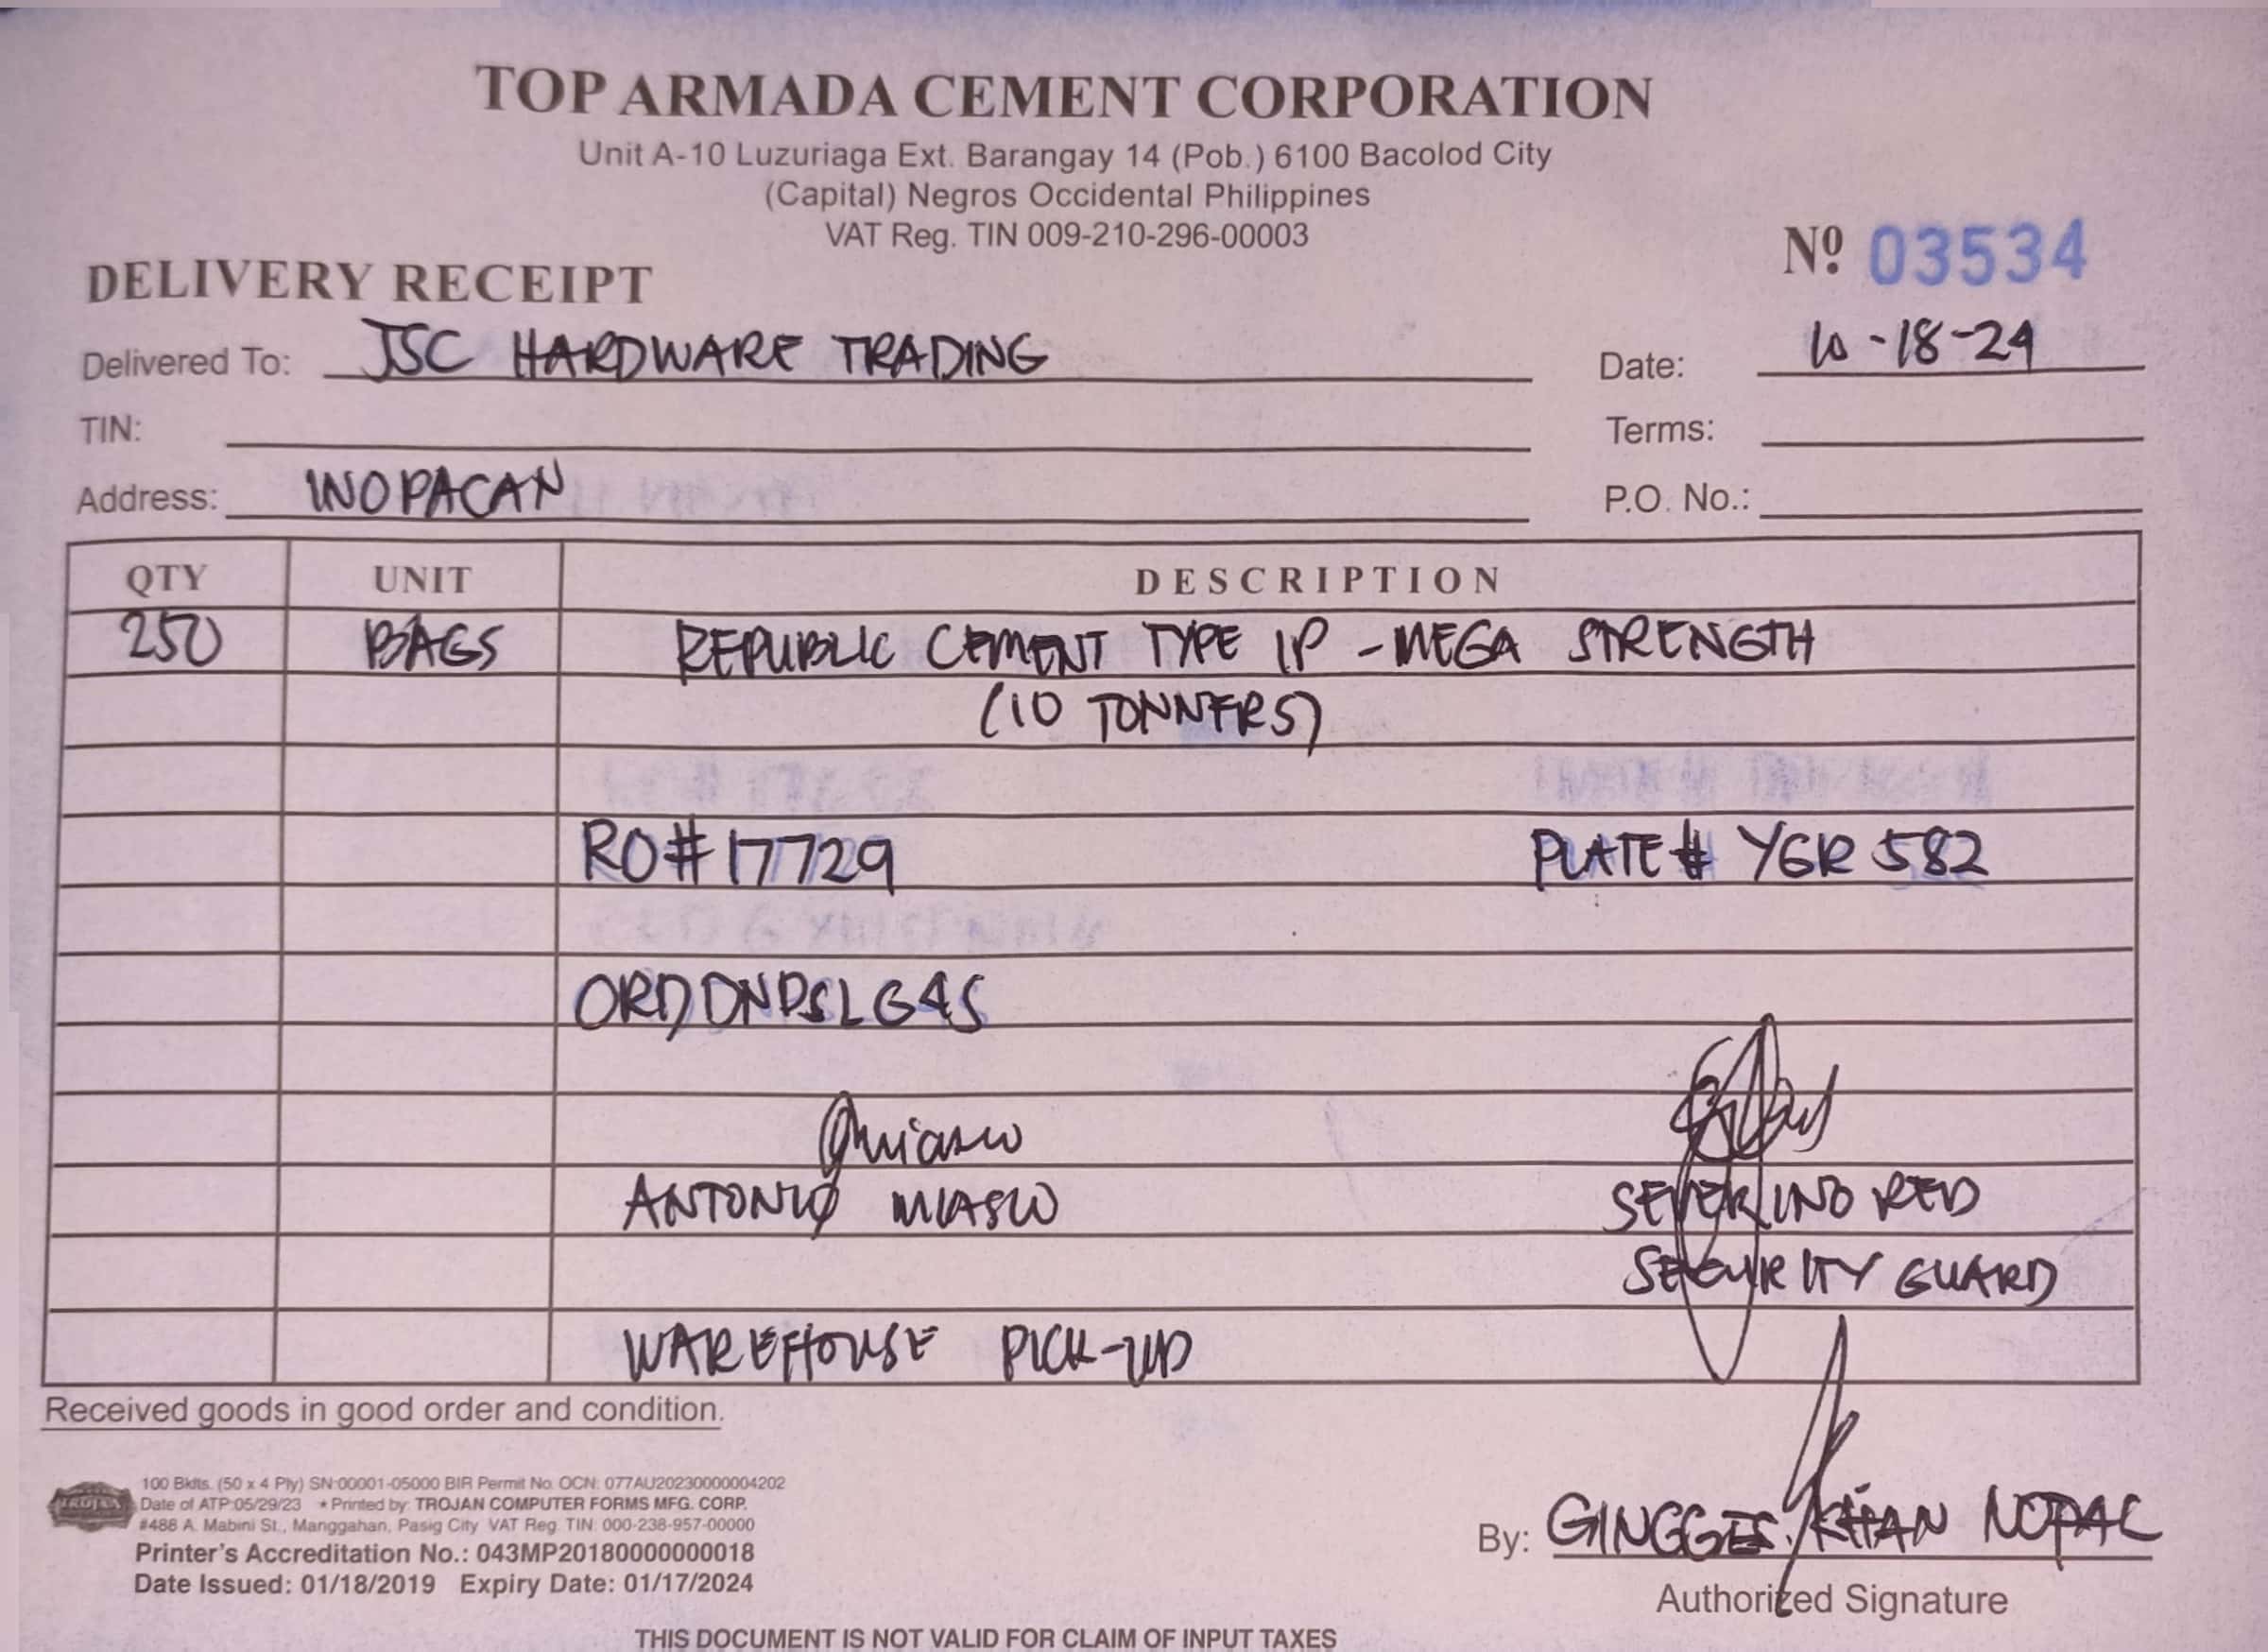 TOP ARMADA CEMENT CORPORATION
Unit A-10 Luzuriaga Ext. Barangay 14 (Pob.) 6100 Bacolod City
(Capital) Negros Occidental Philippines
VAT Reg. TIN 009-210-296-00003
Nº 03534
DELIVERY RECEIPT
Delivered To: JSC HARDWARE TRADING
Date: 10-18-24
TIN:
Terms:
Address: INOPACAN
P.O. No.:
QTY UNIT DESCRIPTION
250 BAGS REPUBLIC CEMENT TYPE 1P - MEGA STRENGTH
(10 TONNERS)
RO# 17729 PLATE # YGR 582
ORD DNDSLG45
ANTONIO MIASCO
SEVERINO RED
SECURITY GUARD
WAREHOUSE PICK-UP
Received goods in good order and condition.
TROJAN
100 Bklts. (50 x 4 Ply) SN:00001-05000 BIR Permit No. OCN: 077AU20230000004202
Date of ATP:05/29/23 * Printed by: TROJAN COMPUTER FORMS MFG. CORP.
#488 A. Mabini St., Manggahan, Pasig City VAT Reg. TIN: 000-238-957-00000
Printer's Accreditation No.: 043MP20180000000018
Date Issued: 01/18/2019 Expiry Date: 01/17/2024
By: GINGGES KHAN NOPAL
Authorized Signature
THIS DOCUMENT IS NOT VALID FOR CLAIM OF INPUT TAXES